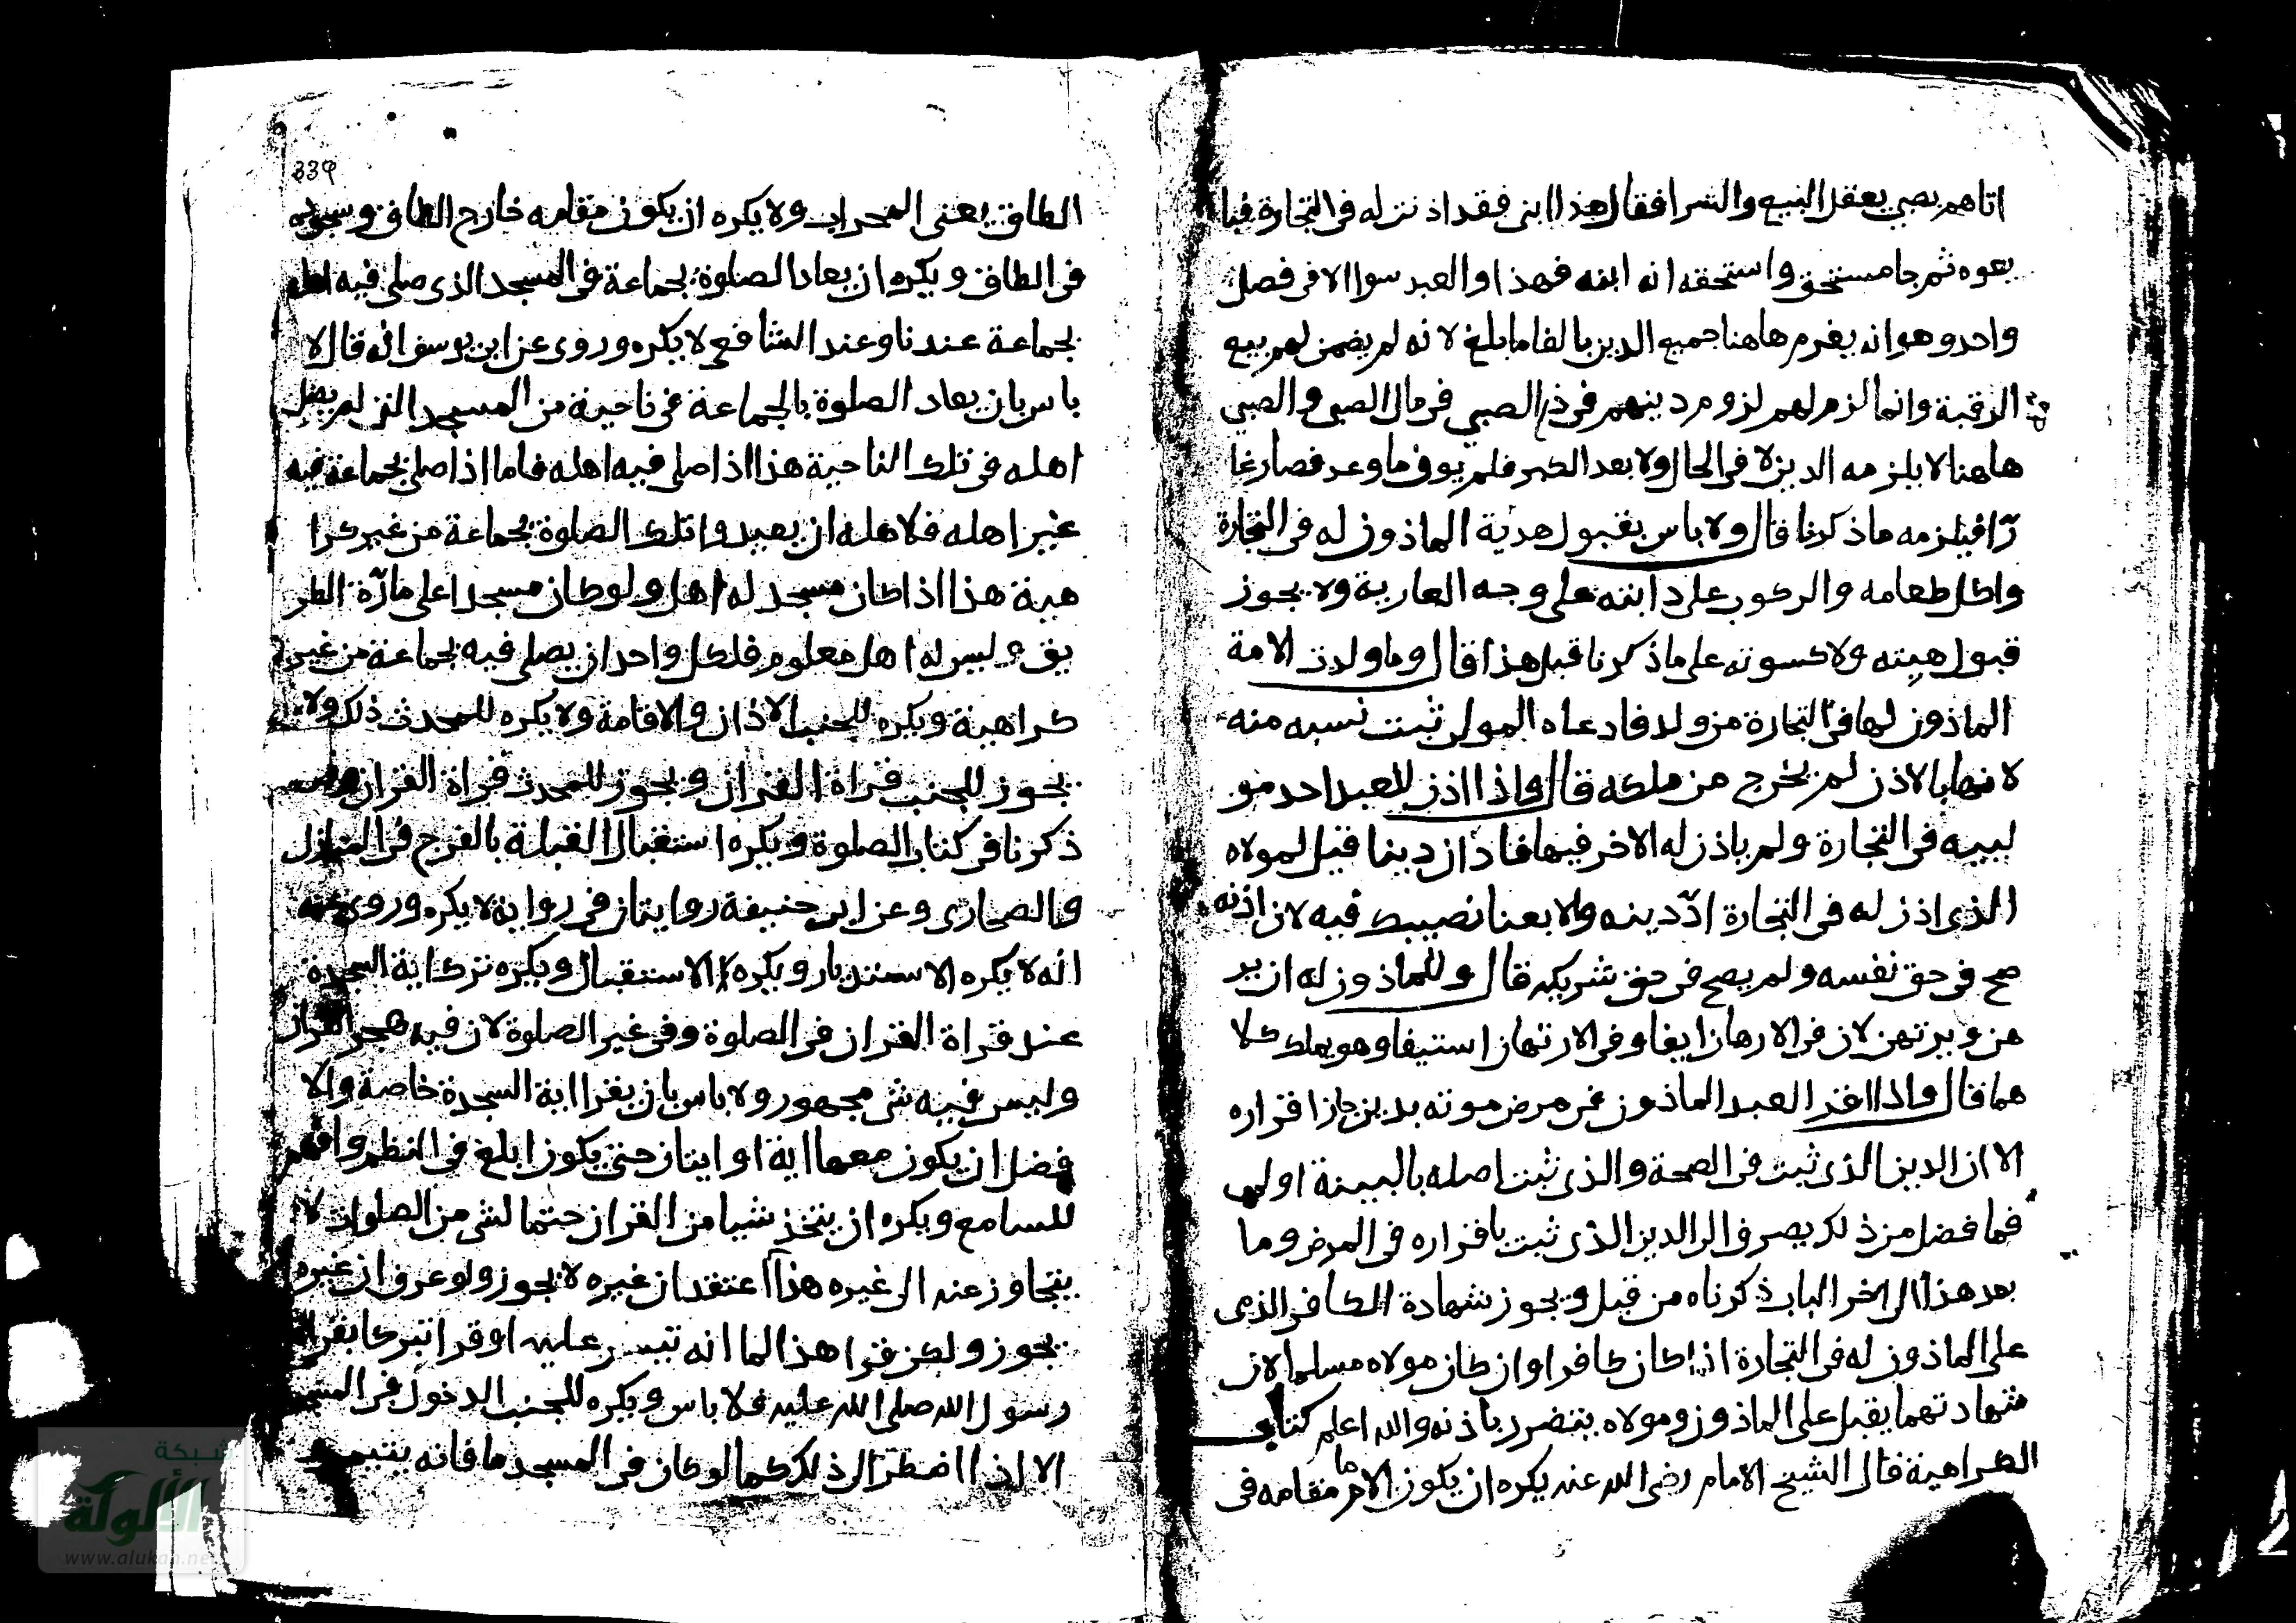 اتاهم بصبي يعقل البيع والشرا فقال هذا ابني فقد اذنت له في التجارة فبا
يعوه ثم جا مستحق واستحقه انه ابنه فهذا والعبد سوا الا في فصل
واحد وهو انه يغرم هاهنا جميع الدين بالغا ما بلغ لانه لم يضمن لهم بيع
الرقبة وانما لزم لهم لزوم دينهم في الصبي في مال الصبي والصبي
هاهنا لا يلزمه الدين لا في الحال ولا بعد الكبر فلم يوف ما وعد فصار غا
رّا فيلزمه ما ذكرنا قال ولا باس بقبول هدية الماذون له في التجارة
واكل طعامه والركوب على دابته على وجه العارية ولا يجوز
قبول هبته ولا كسوته على ما ذكرنا قبل هذا قال وما ولدت الامة
الماذون لها في التجارة من ولد فادعاه المولى ثبت نسبه منه
لانها بالاذن لم يخرج من ملكه قال واذا اذن للعبد احد مو
لييه في التجارة ولم ياذن له الاخر فيها فادان دينا قيل لمولاه
الذي اذن له في التجارة ادّ دينه والا بعنا نصيبك فيه لان اذنه
صح في حق نفسه ولم يصح في حق شريكه قال وللماذون له ان ير
هن ويرتهن لان في الارهان ايفا وفي الارتهان استيفا وهو يملك كلا
هما قال واذا اقر العبد الماذون في مرض موته بدين جاز اقراره
الا ان الدين الذي ثبت في الصحة والذي ثبت اصله بالبينة اولى
فما فضل من ذلك يصرف الى الدين الذي ثبت باقراره في المرض وما
بعد هذا الى اخر الباب ذكرناه من قبل ويجوز شهادة الكافر الذي
على الماذون له في التجارة اذا كان كافرا وان كان مولاه مسلما لان
شهادتهما يقبل على الماذون ومولاه يتضرر باذنه والله اعلم كتاب
الكراهية قال الشيخ الامام رضي الله عنه يكره ان يكون الامام مقامه في
339
الطاق يعني المحراب ولا يكره ان يكون مقامه خارج الطاق وسجوده
في الطاق ويكره ان يعاد الصلوة بجماعة في المسجد الذي صلى فيه اهله
بجماعة عندنا وعند الشافعي لا يكره وروى عن ابي يوسف انه قال لا
باس بان يعاد الصلوة بالجماعة في ناحية من المسجد التي لم يصل
اهله في تلك الناحية هذا اذا صلى فيه اهله فاما اذا صلى بجماعة فيه
غير اهله فلاهله ان يعيدوا تلك الصلوة بجماعة من غير كرا
هية هذا اذا كان مسجد له اهل ولو كان مسجدا على مارّة الطر
يق ليس له اهل معلوم فلكل واحد ان يصلي فيه بجماعة من غير
كراهية ويكره للجنب الاذان والاقامة ولا يكره للمحدث ذلك ولا
يجوز للجنب قراة القران ويجوز للمحدث قراة القران وقد
ذكرنا في كتاب الصلوة ويكره استقبال القبلة بالفرج في المنازل
والصحارى وعن ابي حنيفة روايتان في رواية لا يكره وروى عنه
انه لا يكره الاستدبار ويكره الاستقبال ويكره ترك اية السجدة
عند قراة القران في الصلوة وفي غير الصلوة لان فيه هجر القران
وليس فيه شي مجهور ولا باس بان يقرا اية السجدة خاصة والا
فضل ان يكون معها اية او ايتان حتى يكون ابلغ في النظم وافهم
للسامع ويكره ان يتخذ شيا من القران حتما لشي من الصلوات لا
يتجاوز عنه الى غيره هذا اعتقد ان غيره لا يجوز ولو عرف ان غيره
يجوز ولكن قرا هذا لما انه تيسر عليه او قرا تبركا بقراة
رسول الله صلى الله عليه فلا باس ويكره للجنب الدخول في المسجد
الا اذا اضطر الى ذلك كما لو كان في المسجد ما فانه يتيمم و
شبكة
الألوكة
www.alukah.net